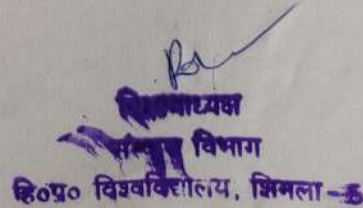 विभागाध्यक्ष
विभाग
हि०प्र० विश्वविद्यालय, शिमला-5